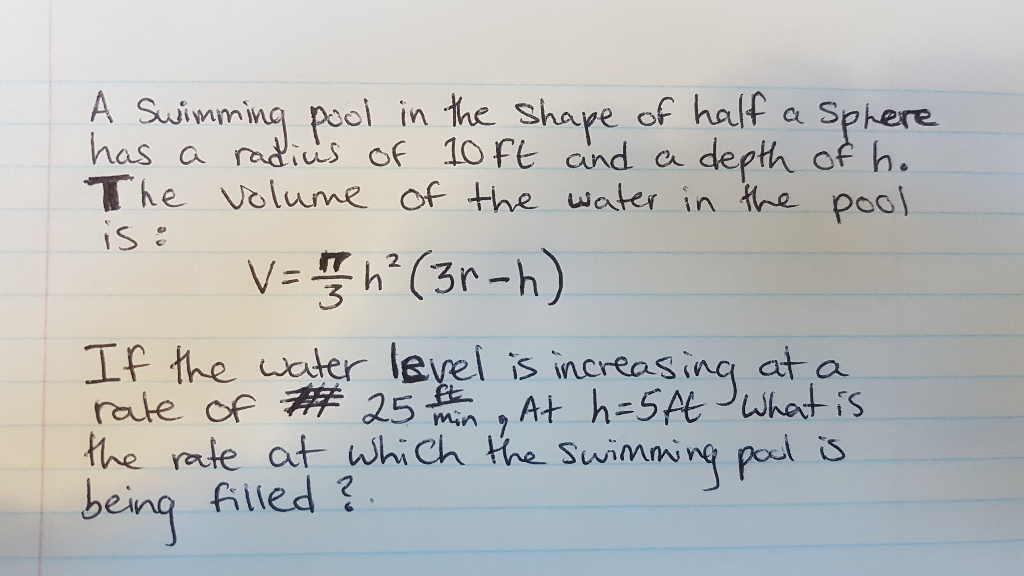 A Swimming pool in the shape of half a Sphere
has a radius of 10 ft and a depth of h.
The volume of the water in the pool
is :
V = π/3 h² (3r - h)
If the water level is increasing at a
rate of 25 ft/min , At h=5ft what is
the rate at which the swimming pool is
being filled ?.